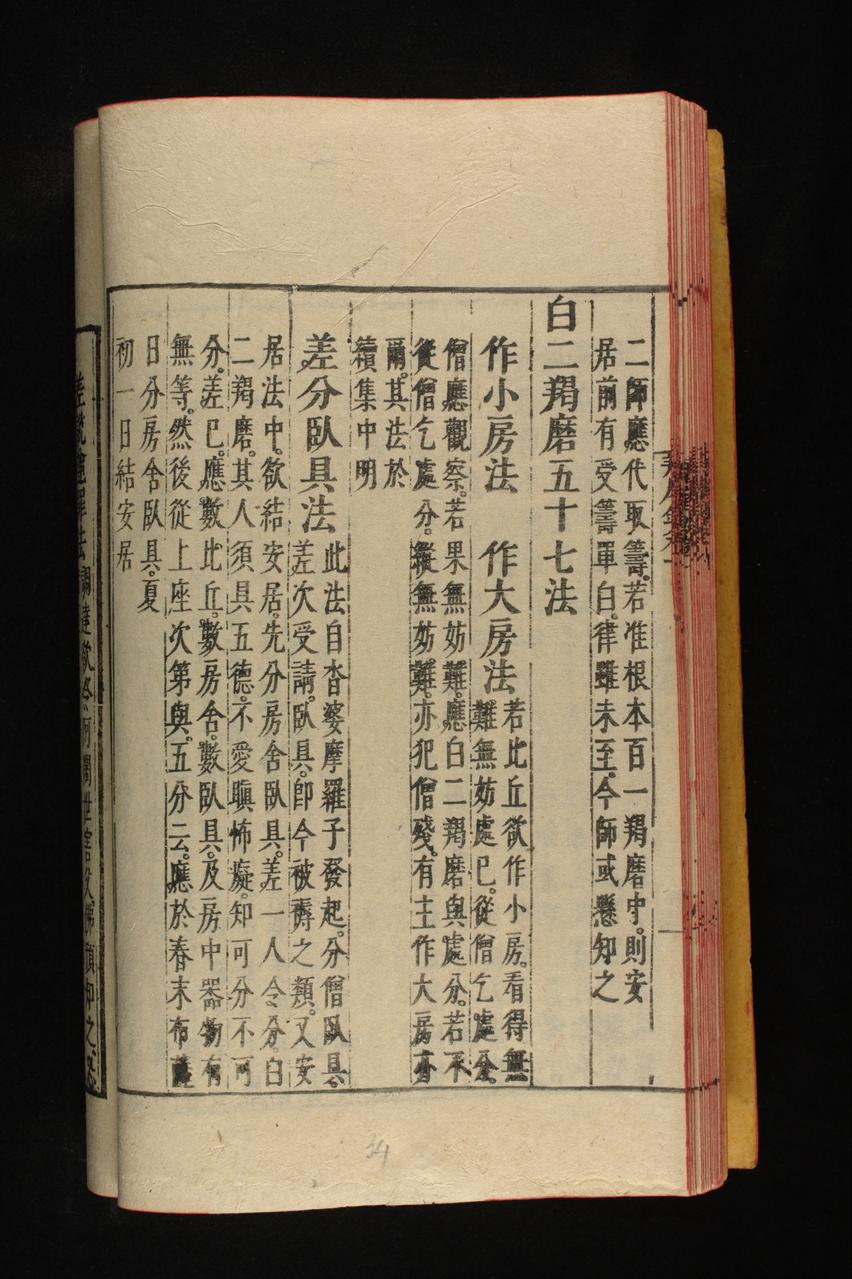 二師應代取籌。若准根本百一羯磨中。則安
居前有受籌單白。律雖未至。今師或懸知之
白二羯磨五十七法
作小房法　作大房法
若比丘欲作小房。看得無
難無妨處已。從僧乞處分。
僧應觀察。若果無妨難。應白二羯磨與處分。若不
從僧乞處分。縱無妨難。亦犯僧殘。有主作大房亦
爾。其法於
續集中明
差分臥具法
此法自沓婆摩羅子發起。分僧臥具。
差次受請。臥具。即今被褥之類。又安
居法中。欲結安居。先分房舍臥具。差一人令分。白
二羯磨。其人須具五德。不愛瞋怖癡。知可分不可
分。差已。應數比丘。數房舍。數臥具。及房中器物有
無等。然後從上座次第與。五分云。應於春末布薩
日分房舍臥具。夏
初一日結安居
34